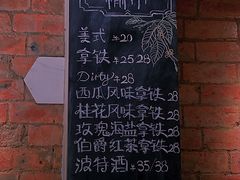 美式 ¥20
拿铁 ¥25 28
Dirty 28
西瓜风味拿铁 28
桂花风味拿铁 28
玫瑰海盐拿铁 28
伯爵红茶拿铁 28
波特酒 ¥35/38